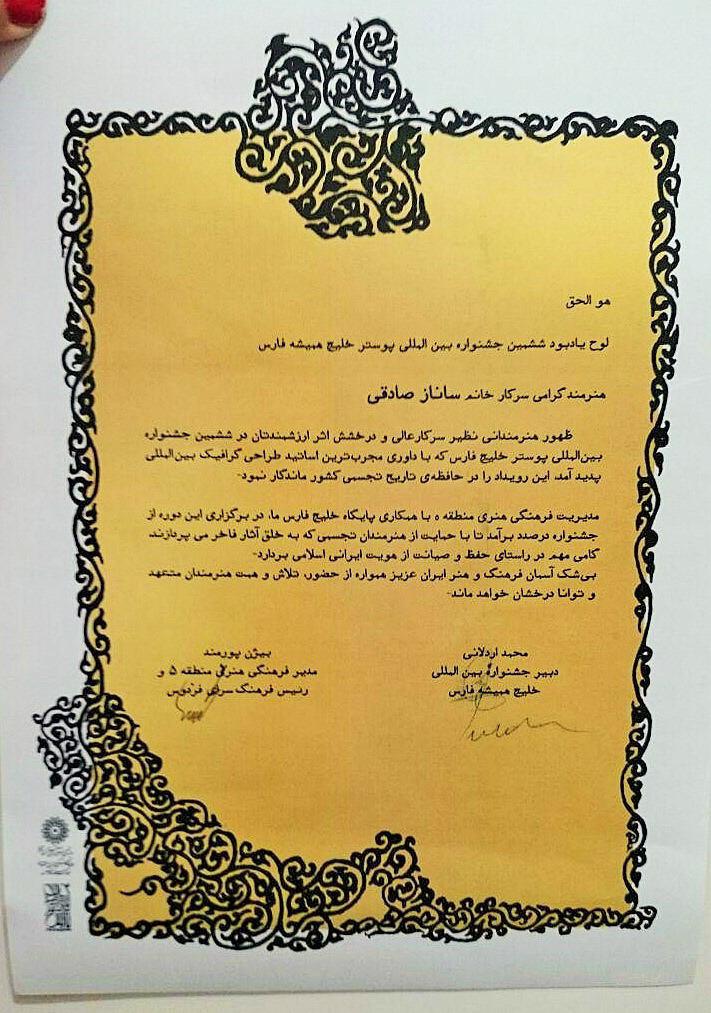 هو الحق
لوح یادبود ششمین جشنواره بین المللی پوستر خلیج همیشه فارس
هنرمند گرامی سرکار خانم ساناز صادقی
ظهور هنرمندانی نظیر سرکارعالی و درخشش اثر ارزشمندتان در ششمین جشنواره
بین‌المللی پوستر خلیج فارس که با داوری مجرب‌ترین اساتید طراحی گرافیک بین‌المللی
پدید آمد، این رویداد را در حافظه‌ی تاریخ تجسمی کشور ماندگار نمود.
مدیریت فرهنگی هنری منطقه ۵ با همکاری پایگاه خلیج فارس ما، در برگزاری این دوره از
جشنواره درصدد برآمد تا با حمایت از هنرمندان تجسمی که به خلق آثار فاخر می پردازند،
گامی مهم در راستای حفظ و صیانت از هویت ایرانی اسلامی بردارد.
بی‌شک آسمان فرهنگ و هنر ایران عزیز همواره از حضور، تلاش و همت هنرمندان متعهد
و توانا درخشان خواهد ماند.
محمد اردلانی
دبیر جشنواره بین المللی
خلیج همیشه فارس
بیژن پورمند
مدیر فرهنگی هنری منطقه ۵ و
رئیس فرهنگ سرای فردوس